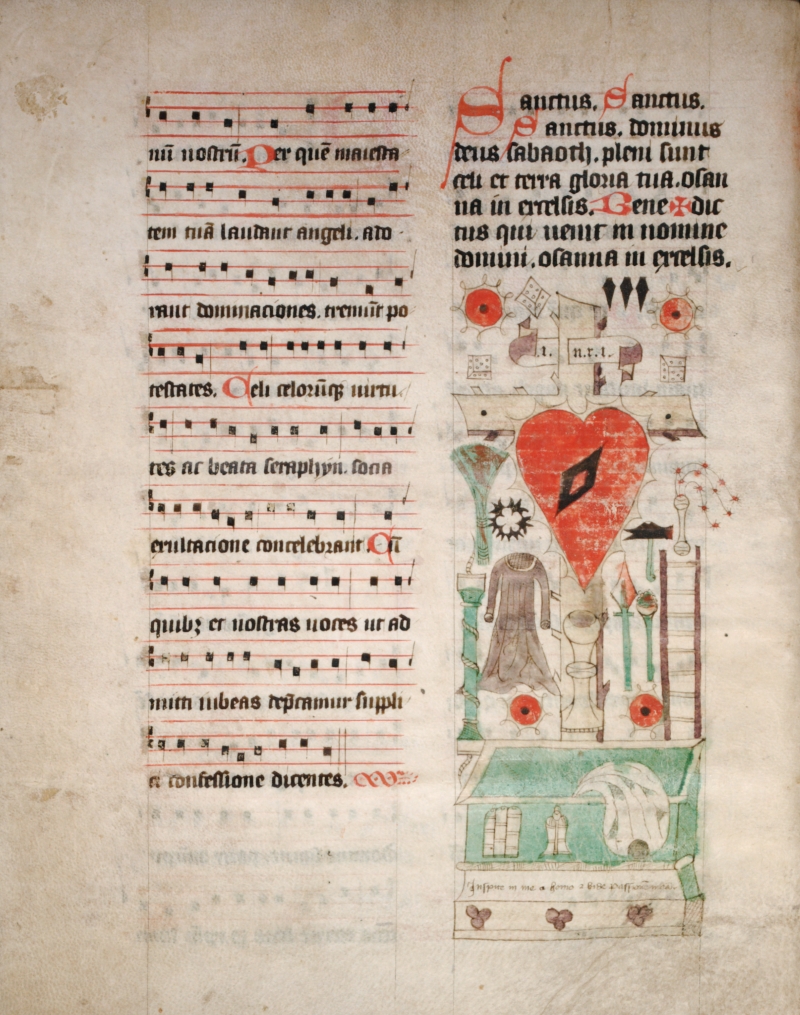 nū nostrū. Per quē maiesta
tem tuā laudant angeli. ado
rant dominaciones. tremūt po
testates. Celi celorūqꝫ uirtu
tes ac beata seraphyn. socia
exultacione concelebrant. Cū
quibꝫ et nostras uoces ut ad
mitti iubeas dep̄camur suppli
ci confessione dicentes.
Sanctus. Sanctus.
Sanctus. dominus
deus sabaoth. pleni sunt
celi et terra gloria tua. osan
na in excelsis. Bene✠dic
tus qui uenit in nomine
domini. osanna in excelsis.
.i. n.r.i.
Inspice in me o homo